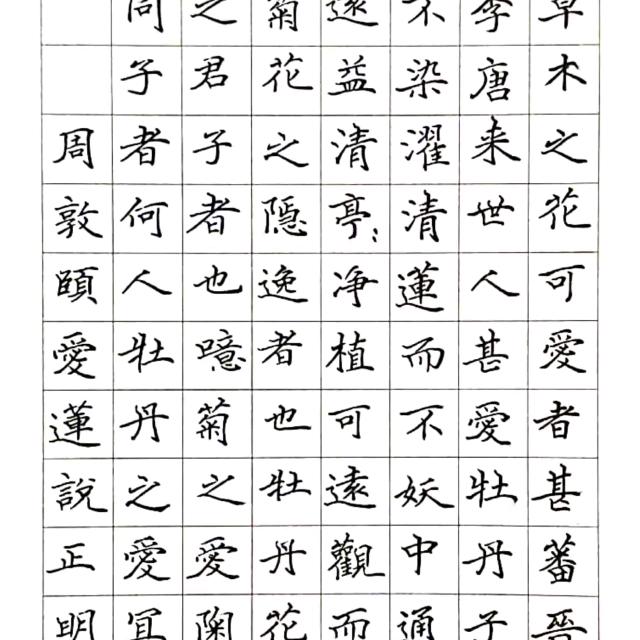 草木之花可愛者甚蕃晋
李唐来世人甚愛牡丹予
不染濯清蓮而不妖中通
遠益清亭〻净植可遠觀而
菊花之隱逸者也牡丹花
之君子者也噫菊之愛陶
同子者何人牡丹之愛宜
周敦頤愛蓮說正明